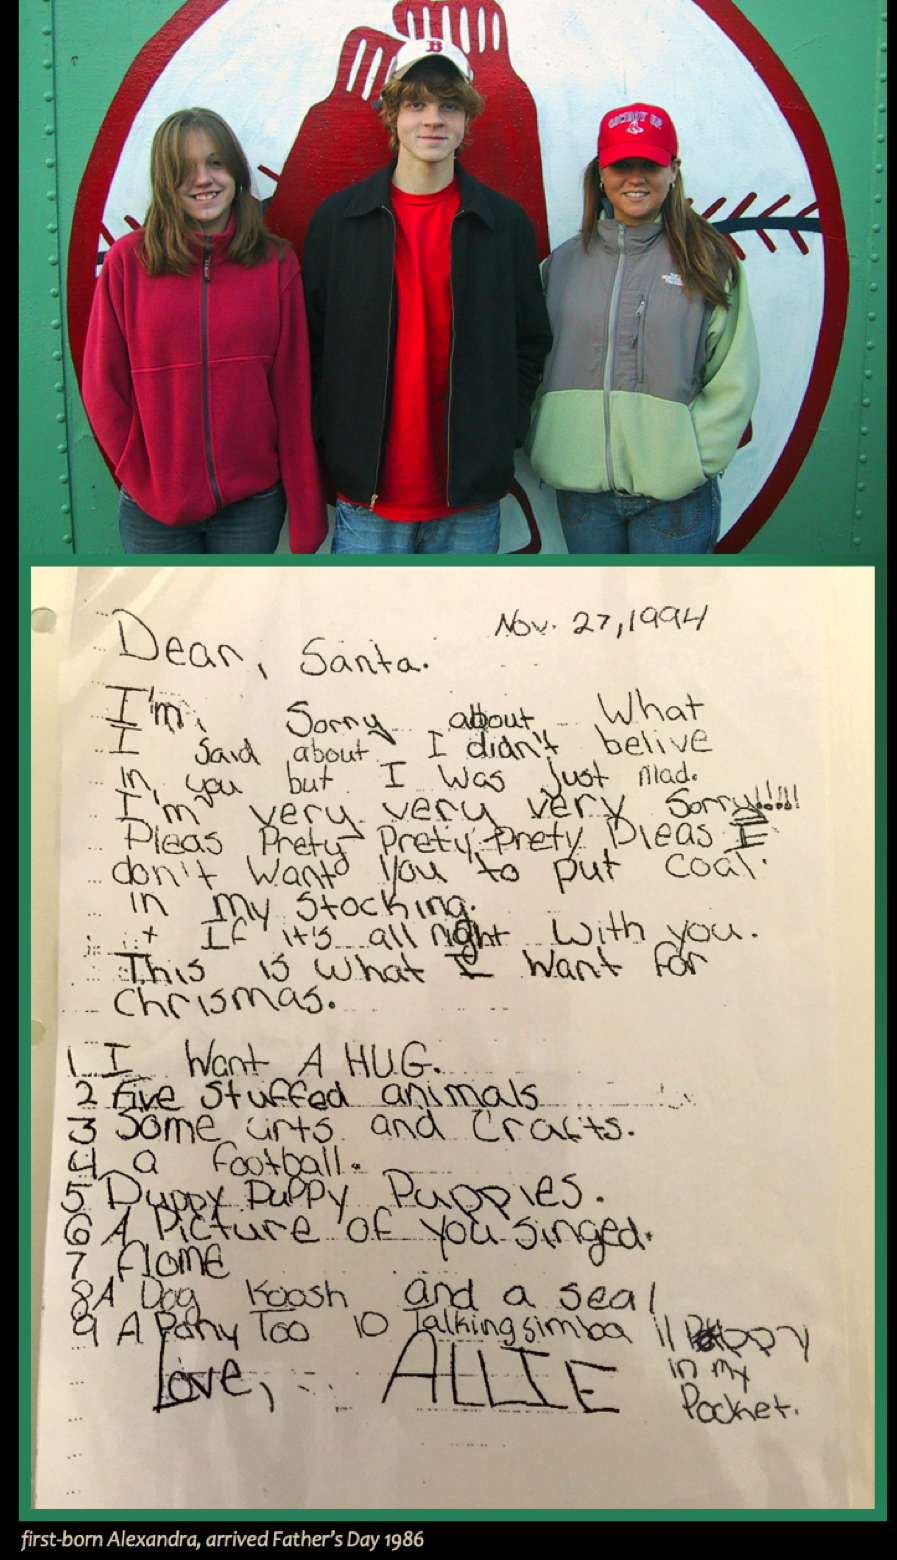 B
COWBOY UP
Nov. 27, 1994
Dear, Santa.
I'm, Sorry about What
I Said about I didn't belive
in, you but I was just mad.
I'm very very very Sorry!!!!!
Pleas Prety Prety Prety Pleas I
don't want you to put coal.
in my Stocking.
+ If it's all right with you.
This is what I want for
Chrismas.
1 I Want A HUG.
2 Five Stuffed animals
3 Some arts and Crafts.
4 a football.
5 Puppy Puppy Puppies.
6 A Picture of you singed.
7 flome
8 A Dog Koosh and a seal
9 A Pony Too 10 Talking simba 11 Puppy
in my
Pocket.
Love, ALLIE
first-born Alexandra, arrived Father's Day 1986